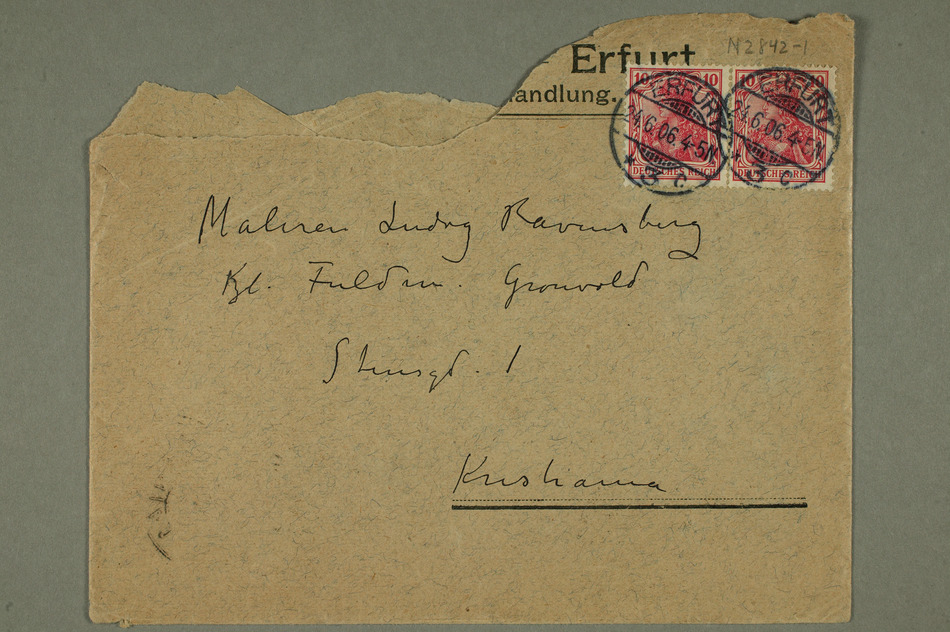 N2842-1
Erfurt
handlung.
10 10 10 10
ERFURT ERFURT
24.6.06. 4-5N 24.6.06. 4-5N
* 3 c. * 3 c.
DEUTSCHES REICH DEUTSCHES REICH
Maleren Ludvig Ravensberg
Grønvold
Stensgd. 1
Kristiania